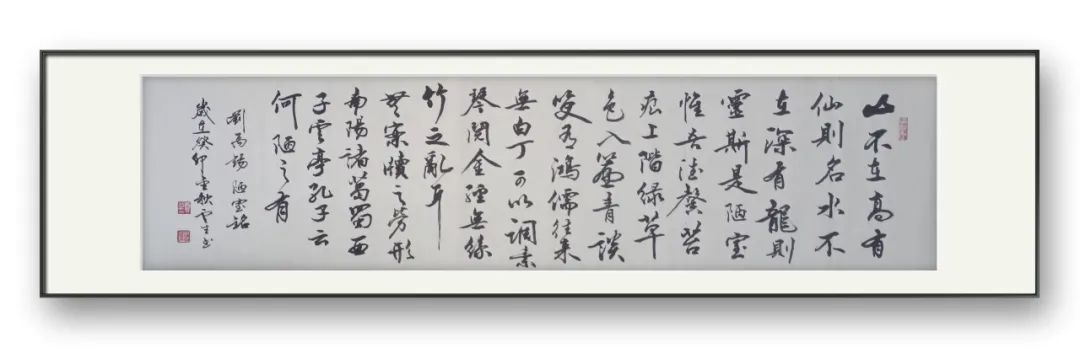 山不在高有
仙則名水不
在深有龍則
靈斯是陋室
惟吾德馨苔
痕上階綠草
色入簾青談
笑有鴻儒往來
無白丁可以調素
琴閱金經無絲
竹之亂耳
無案牘之勞形
南陽諸葛蜀西
子雲亭孔子云
何陋之有
劉禹錫 陋室銘
歲在癸卯秋書